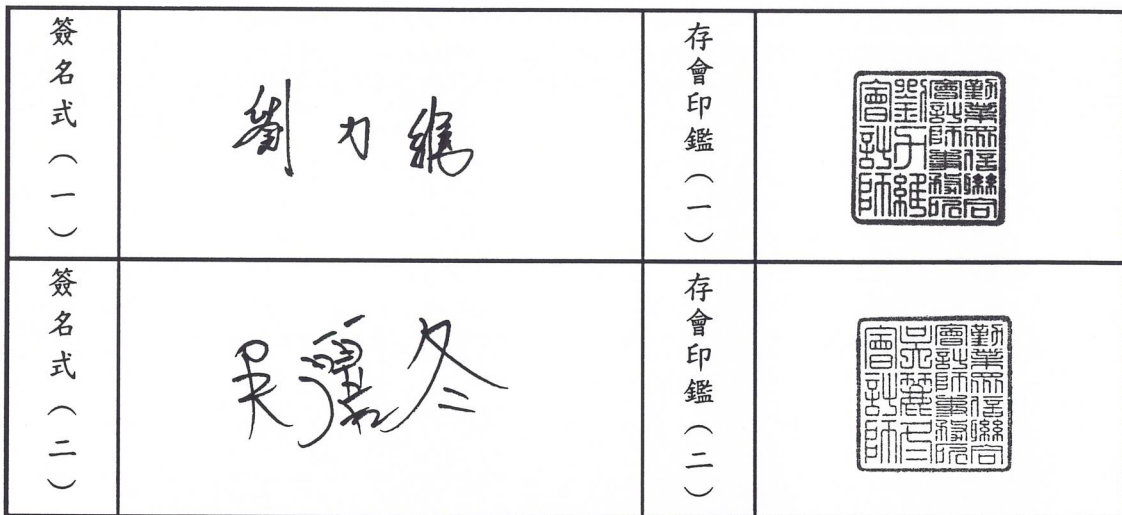 簽名式(一)
劉力維
存會印鑑(一)
勤業眾信聯合
會計師事務所
劉力維
會計師
簽名式(二)
吳麗冬
存會印鑑(二)
勤業眾信聯合
會計師事務所
吳麗冬
會計師